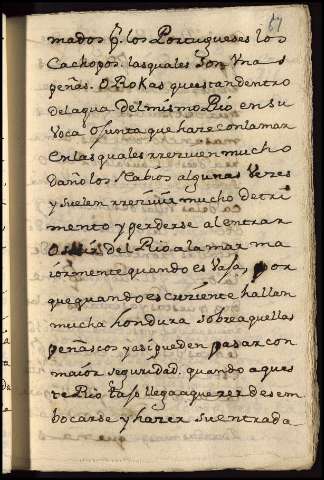 67
mados pr. los Portugueses los
Cachopos. las quales son Vnas
peñas. O Rokas questan dentro
Del agua Del mismo Rio en su
Voca O Junta que haze con la mar
en las quales rreciuen mucho
Daño los Nabios algunas Vezes
y suelen rreciuir mucho detri
mento y perderse al entrar
O salir del Rio a la mar ma
iormente quando es Vasa, por
que quando es creziente hallan
mucha hondura sobre aquellas
peñascos y asi pueden pasar con
maior seguridad. quando aques
te Rio tajo llega a querer desem
bocarse y hazer su entrada